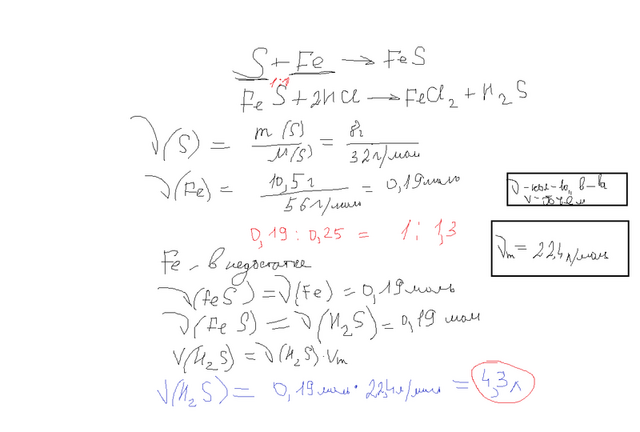 S + Fe → FeS
1:1
FeS + 2HCl → FeCl₂ + H₂S
ν(S) = m(S)/M(S) = 8г/32г/мол
ν(Fe) = 10,5г/56г/мол = 0,19моль
ν - кол-во в-ва
V -
0,19 : 0,25 = 1 : 1,3
Vm = 22,4л/моль
Fe - в недостатке
ν(FeS) = ν(Fe) = 0,19 моль
ν(FeS) = ν(H₂S) = 0,19 мол
V(H₂S) = ν(H₂S)·Vm
V(H₂S) = 0,19мол · 22,4л/мол = 4,3л